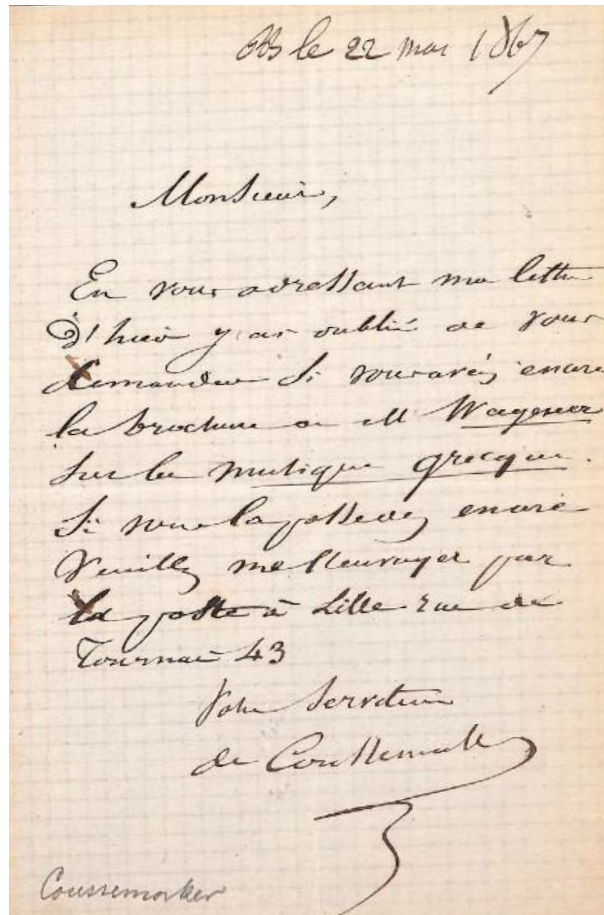 le 22 mai 1867
Monsieur,
En vous adressant ma lettre
d'hier j'ai oublié de vous
demander si vous avez encore
la brochure de M Wagener
sur la musique grecque.
Si vous la possedez encore
Veuillez me l'envoyer par
la poste à Lille rue de
Tournai 43
Votre Serviteur
de Coussemaker
Coussemaker